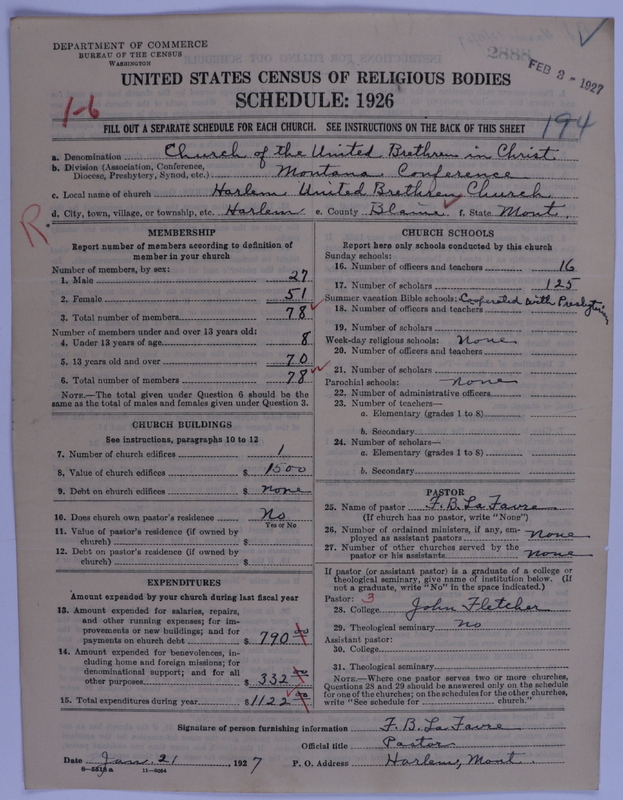 DEPARTMENT OF COMMERCE
BUREAU OF THE CENSUS
WASHINGTON
2888
FEB 3 - 1927
UNITED STATES CENSUS OF RELIGIOUS BODIES
SCHEDULE: 1926
1-6
194
FILL OUT A SEPARATE SCHEDULE FOR EACH CHURCH. SEE INSTRUCTIONS ON THE BACK OF THIS SHEET
a. Denomination Church of the United Brethren in Christ
b. Division (Association, Conference, Diocese, Presbytery, Synod, etc.) Montana Conference
c. Local name of church Harlem United Brethren Church
d. City, town, village, or township, etc. Harlem e. County Blaine f. State Mont.
R
MEMBERSHIP
Report number of members according to definition of
member in your church
Number of members, by sex:
1. Male 27
2. Female 51
3. Total number of members 78
Number of members under and over 13 years old:
4. Under 13 years of age 8
5. 13 years old and over 70
6. Total number of members 78
NOTE.—The total given under Question 6 should be
same as the total of males and females given under Question 3.
CHURCH BUILDINGS
See instructions, paragraphs 10 to 12
7. Number of church edifices 1
8. Value of church edifices $ 1500
9. Debt on church edifices $ none
10. Does church own pastor's residence No
Yes or No
11. Value of pastor's residence (if owned by
church) $
12. Debt on pastor's residence (if owned by
church) $
EXPENDITURES
Amount expended by your church during last fiscal year
13. Amount expended for salaries, repairs,
and other running expenses; for im-
provements or new buildings; and for
payments on church debt $ 790 00
14. Amount expended for benevolences, in-
cluding home and foreign missions; for
denominational support; and for all
other purposes $ 332 00
15. Total expenditures during year $ 1122 00
CHURCH SCHOOLS
Report here only schools conducted by this church
Sunday schools:
16. Number of officers and teachers 16
17. Number of scholars 125
Summer vacation Bible schools: Cooperated with Presbyterian
18. Number of officers and teachers
19. Number of scholars
Week-day religious schools: None
20. Number of officers and teachers
21. Number of scholars
Parochial schools: none
22. Number of administrative officers
23. Number of teachers—
a. Elementary (grades 1 to 8)
b. Secondary
24. Number of scholars—
a. Elementary (grades 1 to 8)
b. Secondary
PASTOR
25. Name of pastor F. B. La Favre
(If church has no pastor, write "None")
26. Number of ordained ministers, if any, em-
ployed as assistant pastors none
27. Number of other churches served by the
pastor or his assistants none
If pastor (or assistant pastor) is a graduate of a college or
theological seminary, give name of institution below. (If
not a graduate, write "No" in the space indicated.)
Pastor: 3
28. College John Fletcher
29. Theological seminary no
Assistant pastor:
30. College
31. Theological seminary
NOTE.—Where one pastor serves two or more churches,
Questions 28 and 29 should be answered only on the schedule
for one of the churches; on the schedules for the other churches,
write "See schedule for church."
Signature of person furnishing information F. B. La Favre
Official title Pastor
Date Jan. 21, 1927 P. O. Address Harlem, Mont.
8-5518a 11-8084